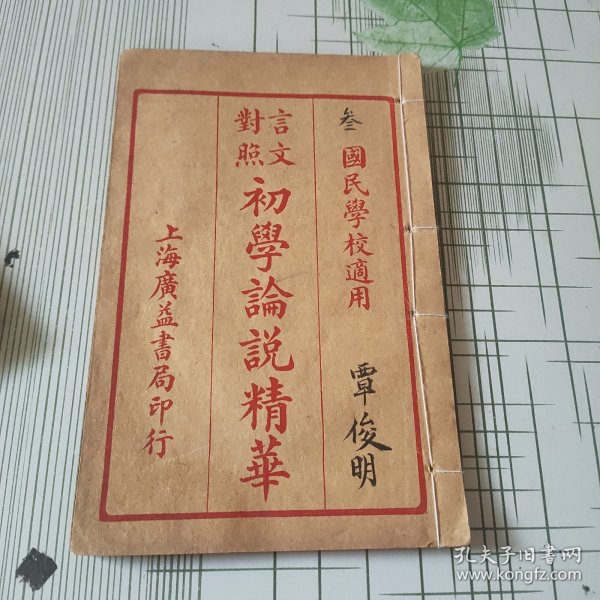 叁
國民學校適用
覃俊明
言文
對照
初學論說精華
上海廣益書局印行
孔夫子旧书网
www.kongfz.com